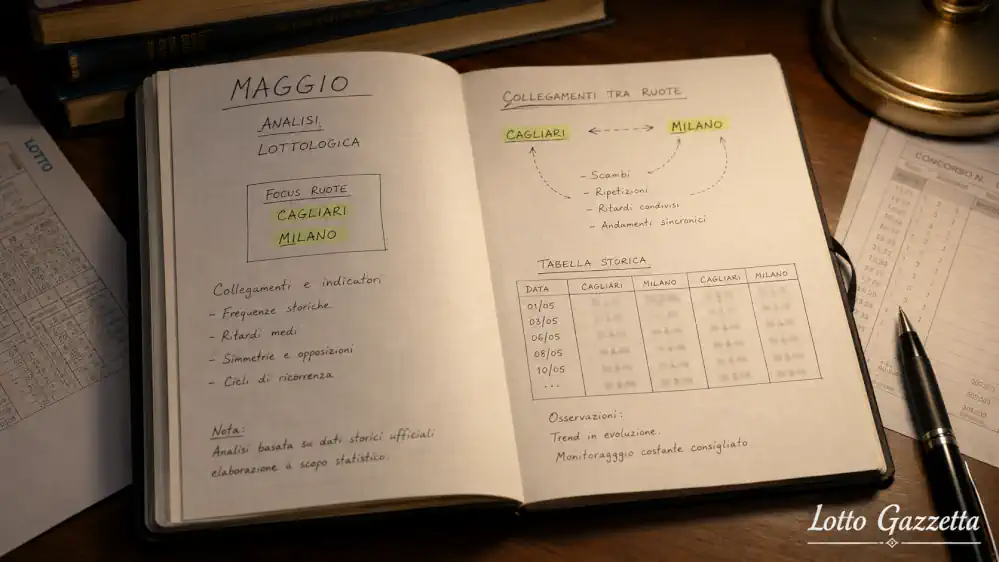 MAGGIO
ANALISI
LOTTOLOGICA
FOCUS RUOTE
CAGLIARI
MILANO
Collegamenti e indicatori
- Frequenze storiche
- Ritardi medi
- Simmetrie e opposizioni
- Cicli di ricorrenza
Nota:
Analisi basata su dati storici ufficiali
elaborazione a scopo statistico.
COLLEGAMENTI TRA RUOTE
CAGLIARI MILANO
- Scambi
- Ripetizioni
- Ritardi condivisi
- Andamenti sincronici
TABELLA STORICA
DATA CAGLIARI MILANO CAGLIARI MILANO
01/05
03/05
06/05
08/05
10/05
...
Osservazioni:
Trend in evoluzione.
Monitoragggio costante consigliato
LOTTO
CONCORSO N.
Lotto Gazzetta